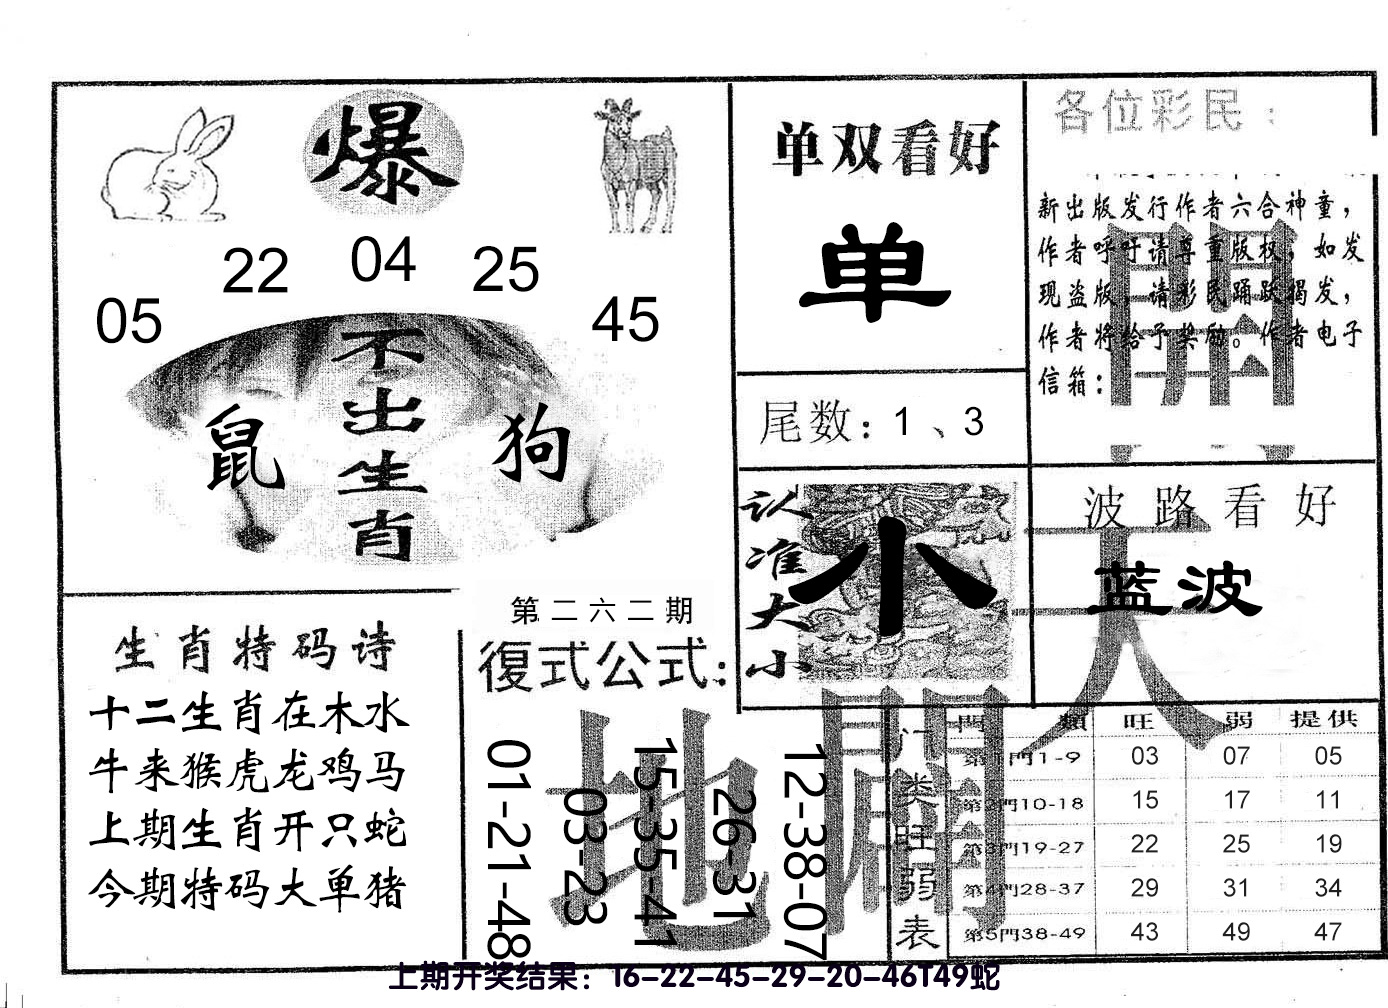 爆
22 04 25
05 45
不出生肖
鼠 狗
单双看好
单
尾数：1、3
各位彩民：
新出版发行作者六合神童，
作者呼吁请尊重版权，如发
现盗版，请彩民踊跃揭发，
作者将给予奖励。作者电子
信箱：
開
天
地
開
认准大小
小
波路看好
蓝波
生肖特码诗
十二生肖在木水
牛来猴虎龙鸡马
上期生肖开只蛇
今期特码大单猪
第二六二期
復式公式：
01-21-48
03-23
15-35-41
26-31
12-38-07
门类旺弱表
門類 旺 弱 提供
第1門1-9 03 07 05
第2門10-18 15 17 11
第3門19-27 22 25 19
第4門28-37 29 31 34
第5門38-49 43 49 47
上期开奖结果：16-22-45-29-20-46T49蛇